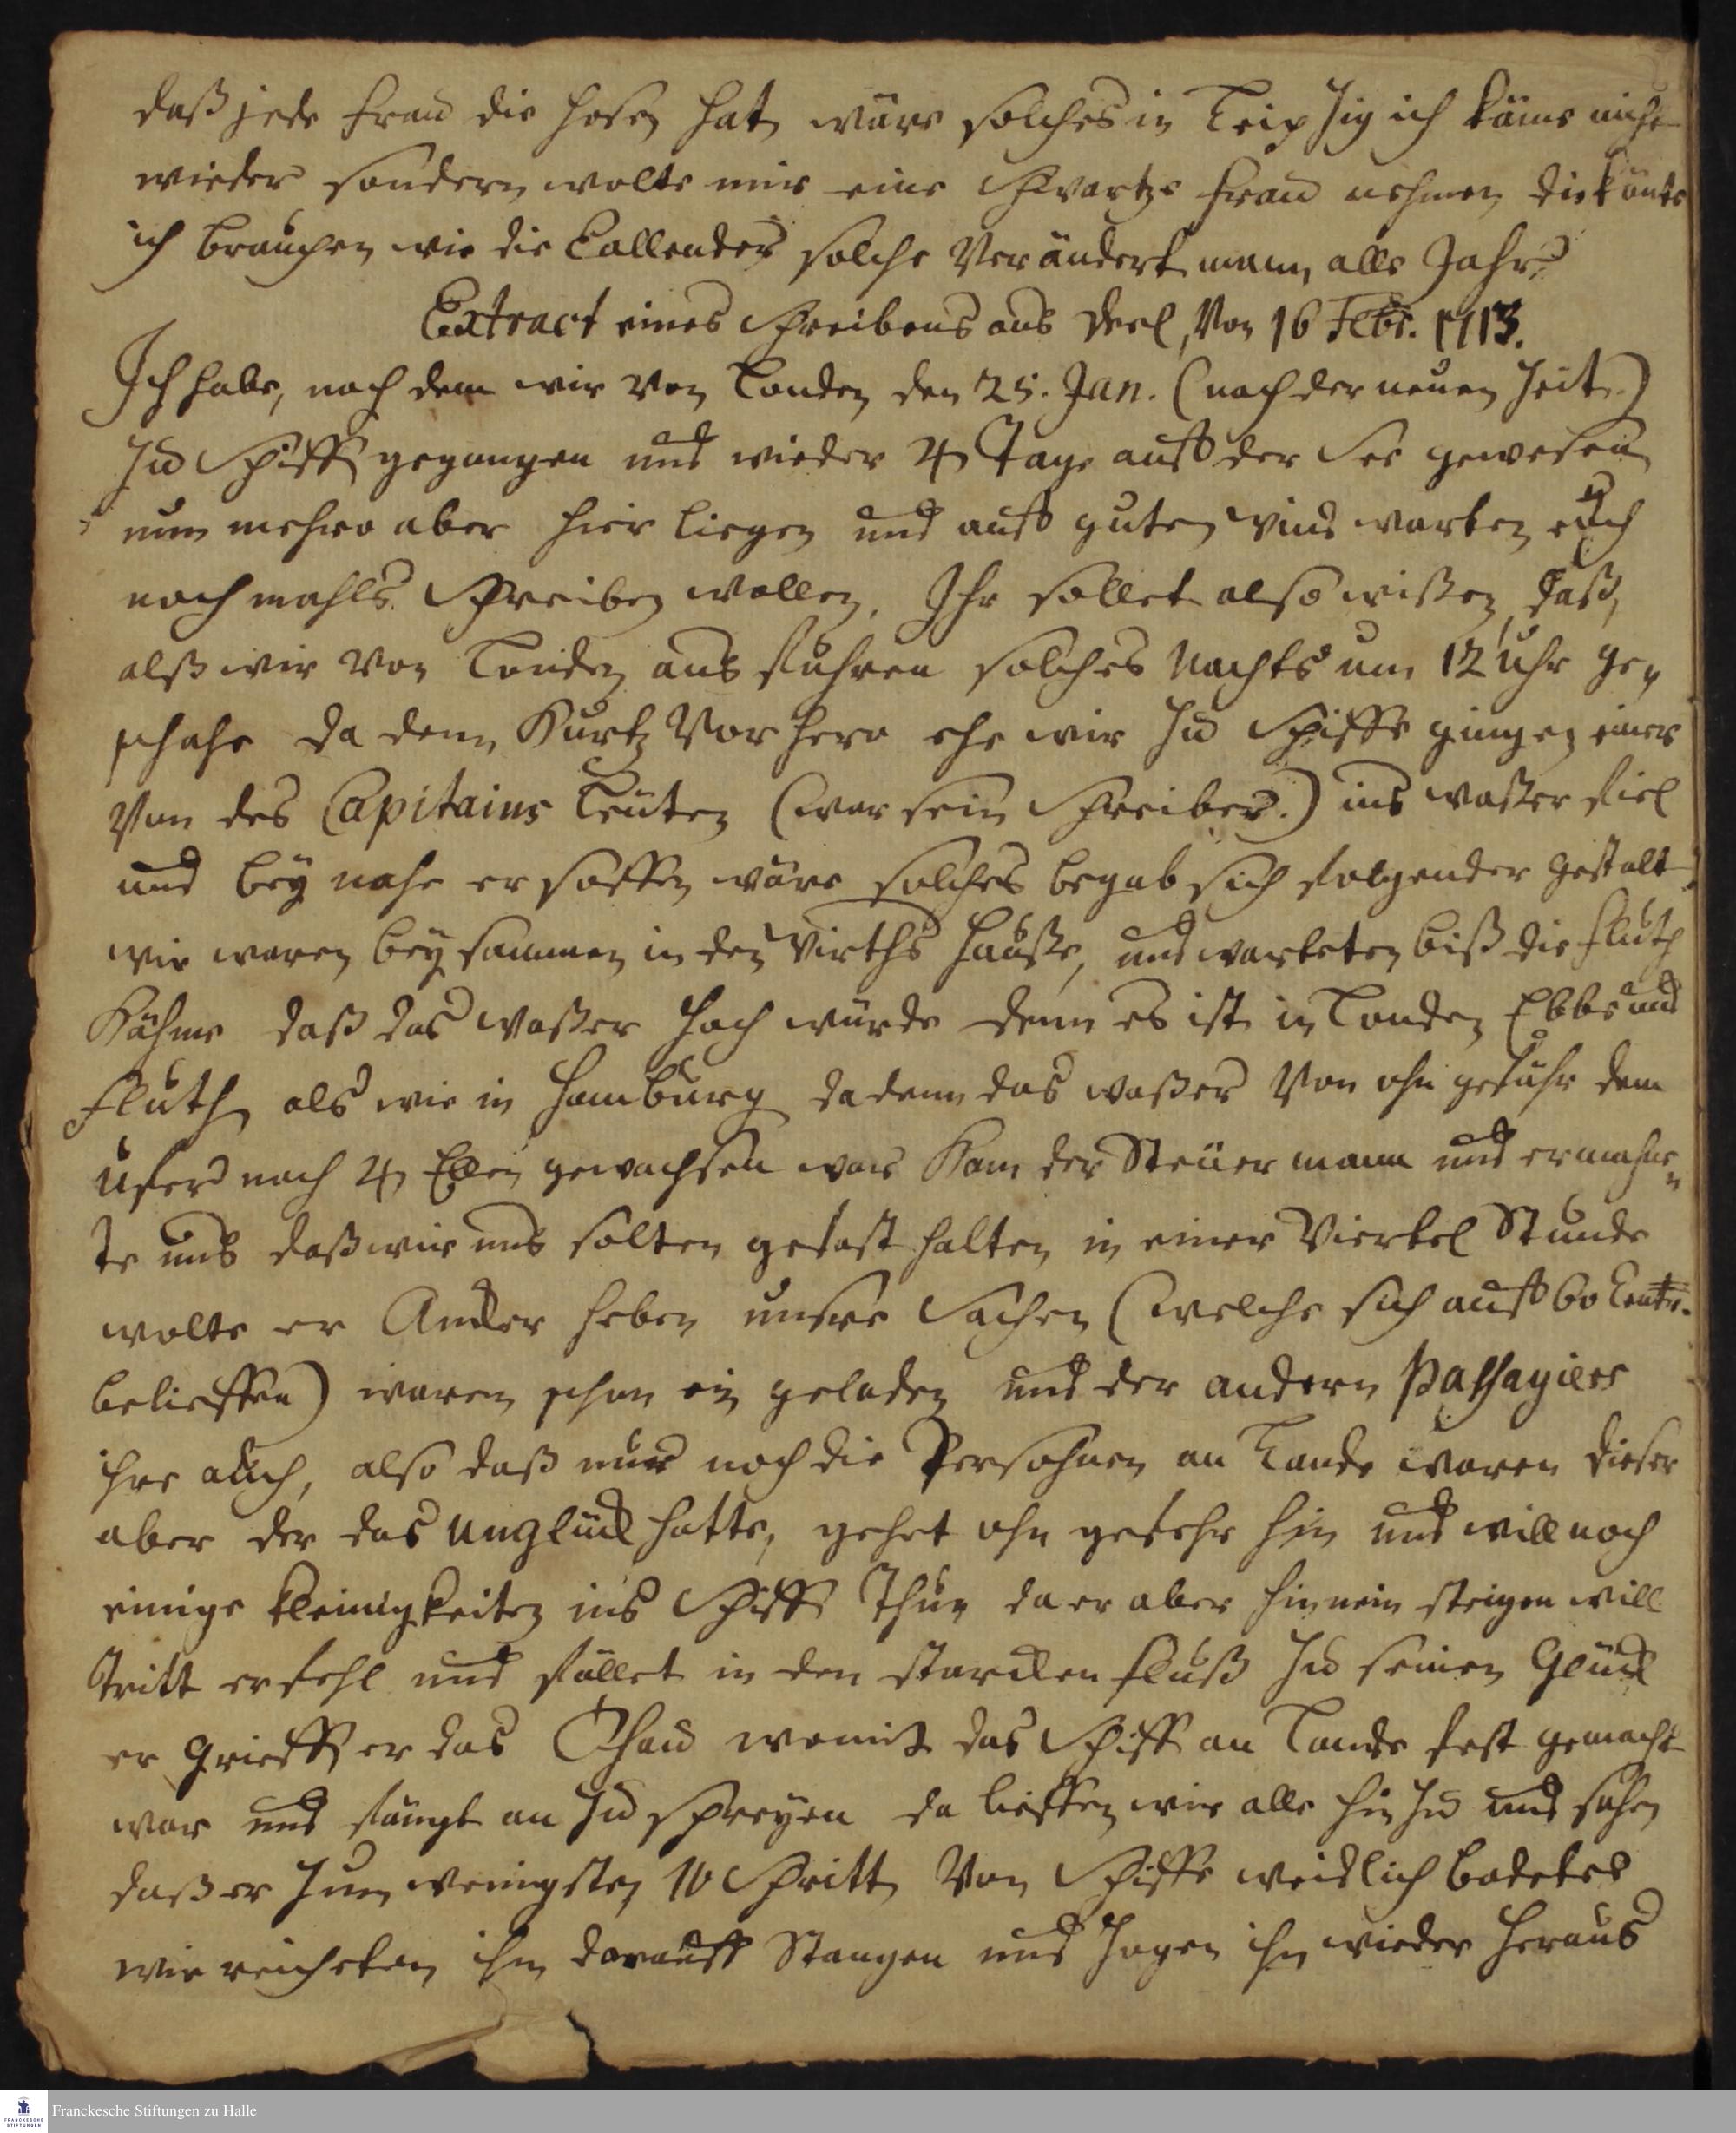 daß jede Frau die Hosen hat, wäre solches in Leipzig ich käme nicht
wieder sondern wolte mir eine Schwartze Frau nehmen, die könte
ich brauchen wie die Callender solche Verändert mann alle Jahr.
Extract eines Schreibens aus Deel, Von 16 Febr. 1713.
Ich habe, nach dem wir von Londen den 25. Jan. (nach der neuen Zeit.)
zu Schiff gegangen und wieder 4 Tage auff der See gewesen
nun mehro aber hier liegen und auff guten wind warten, euch
nochmahls Schreiben wollen. Ihr sollet also wißen, daß,
alß wir von Londen aus fuhren solches Nachts um 12 Uhr ge-
schahe da denn Kurtz Vorhero ehe wir zu Schiffe gingen einer
Von des Capitains Leuten (war sein Schreiber.) ins waßer fiel
und bey nahe ersoffen wäre solches begab sich folgender gestalt
wir waren beysammen in den Wirths Hauße, und warteten biß die Fluth
Kähme daß das waßer hoch würde denn es ist in Londen Ebbe und
Fluth als wie in Hamburg da denn das waßer Von ohn gefuhr dem
Ufer nach 4 Ellen gewachsen war Kam der Steuermann und ermahn-
te uns daß wir uns solten gefast halten, in einer Viertel Stunde
wolte er Ancker heben unsere Sachen (welche sich auff 60 Centr.
belieffen) waren schon ein geladen und der andern Passagiers
ihre auch, also daß nur noch die Persohnen an Lande waren dieser
aber der das Unglück hatte, gehet ohn gefehr hin und will noch
einige Kleinigkeiten ins Schiff Thun da er aber hinnein steigen will
Tritt er fehl und fället in den starcken Fluß zu seinen Glück
er Grieff er das Thau womit das Schiff an Lande fest gemacht
war und fängt an zu schreyen da lieffen wir alle hinzu und sahen
daß er zum wenigsten 10 Schritt Von Schiffe weidlich badete
wir reicheten ihm darauff Stangen und zogen ihn wieder heraus
Franckesche Stiftungen zu Halle